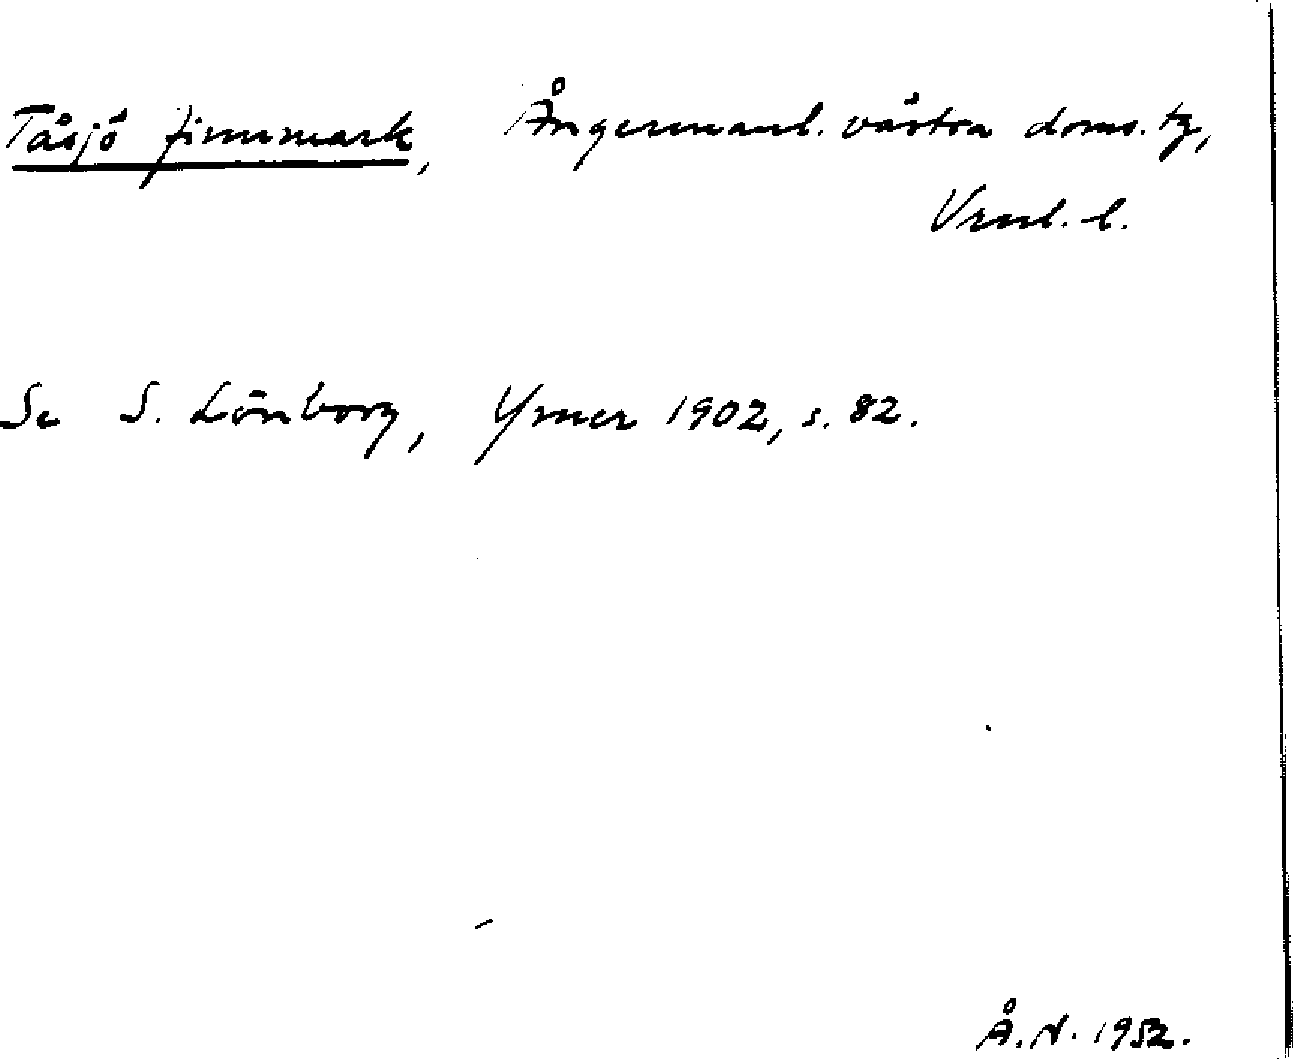 Tåsjö finnmark, Ångermanl. västra doms. tg,
Vrnl. l.
Se S. Lönborg, Ymer 1902, s. 82.
Å. N. 1952.